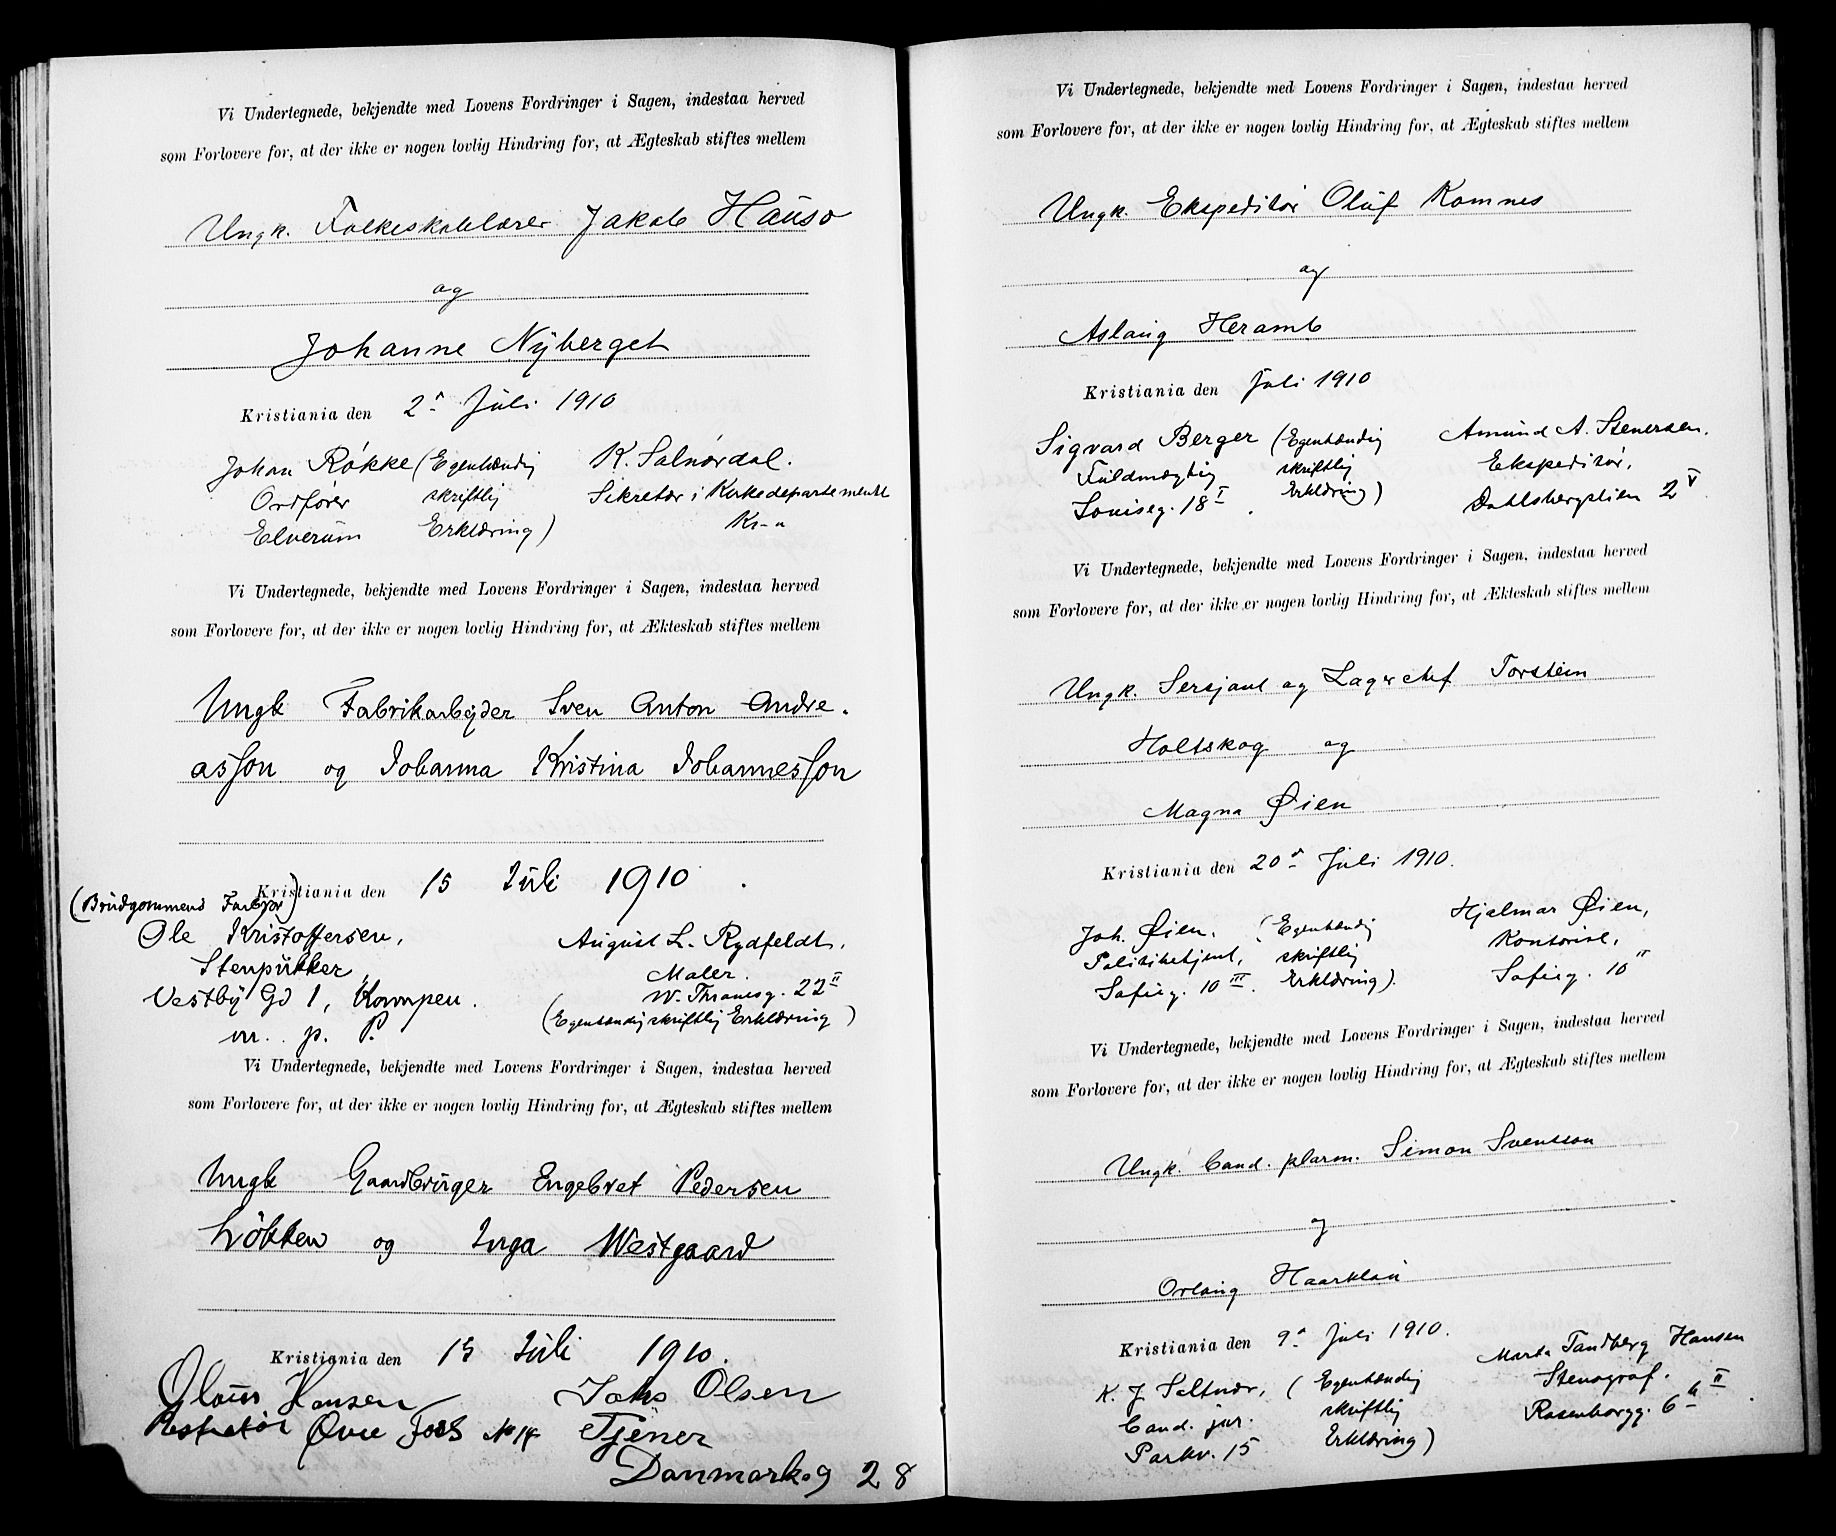 Vi Undertegnede, bekjendte med Lovens Fordringer i Sagen, indestaa herved
som Forlovere for, at der ikke er nogen lovlig Hindring for, at Ægteskab stiftes mellem
Ungk. Folkeskolelærer Jakob Hauso
og
Johanne Nyberget
Kristiania den 2n Juli 1910
Johan Røkke (Egenhændig K. Salnørdal.
Ordfører skriftlig Sekretær i Kirkedepartementet
Elverum Erklæring) Kr-a
Vi Undertegnede, bekjendte med Lovens Fordringer i Sagen, indestaa herved
som Forlovere for, at der ikke er nogen lovlig Hindring for, at Ækteskab stiftes mellem
Ungk Fabrikarbejder Sven Anton Andre-
asson og Johanna Kristina Johannesson
Kristiania den 15 Juli 1910.
(Brudgommens Farbror)
Ole Kristoffersen, August L. Rydfeldt,
Stenpukker Maler.
Vestby Gd 1, Kampen. W. Thranesg. 22 II
m. p. P. (Egenhændig skriftlig Erklæring)
Vi Undertegnede, bekjendte med Lovens Fordringer i Sagen, indestaa herved
som Forlovere for, at der ikke er nogen lovlig Hindring for, at Ægteskab stiftes mellem
Ungk Gaardbruger Engebret Pedersen
Løkken og Inga Westgaard
Kristiania den 15 Juli 1910.
Olaus Hansen Johs Olsen
Øvre Foss No 14 Tjener
Danmarksg 28
Vi Undertegnede, bekjendte med Lovens Fordringer i Sagen, indestaa herved
som Forlovere for, at der ikke er nogen lovlig Hindring for, at Ægteskab stiftes mellem
Ungk. Ekspeditør Oluf Komnes
og
Aslaug Heramb
Kristiania den Juli 1910
Sigvard Berger (Egenhændig Amund A. Stenersen.
Fuldmægtig skriftlig Ekspeditør,
Louiseg. 18 I. Erklæring) Dahlsbergstien 2 V
Vi Undertegnede, bekjendte med Lovens Fordringer i Sagen, indestaa herved
som Forlovere for, at der ikke er nogen lovlig Hindring for, at Ækteskab stiftes mellem
Ungk. Sersjant og Lagerchef Torstein
Holtskog og
Magna Øien
Kristiania den 20n Juli 1910.
Joh. Øien, (Egenhændig Hjalmar Øien,
Politibetjent, skriftlig Kontorist,
Sofieg. 10 III. Erklæring). Sofieg. 10 II
Vi Undertegnede, bekjendte med Lovens Fordringer i Sagen, indestaa herved
som Forlovere for, at der ikke er nogen lovlig Hindring for, at Ægteskab stiftes mellem
Ungk. Cand. pharm. Simon Svensson
og
Orlaug Haarklau
Kristiania den 9n Juli 1910.
K. J. Saltnær, (Egenhændig Marta Tandberg Hansen
Cand. jur. skriftlig Stenograf.
Parkv. 15 Erklæring) Rosenborgg. 6 II